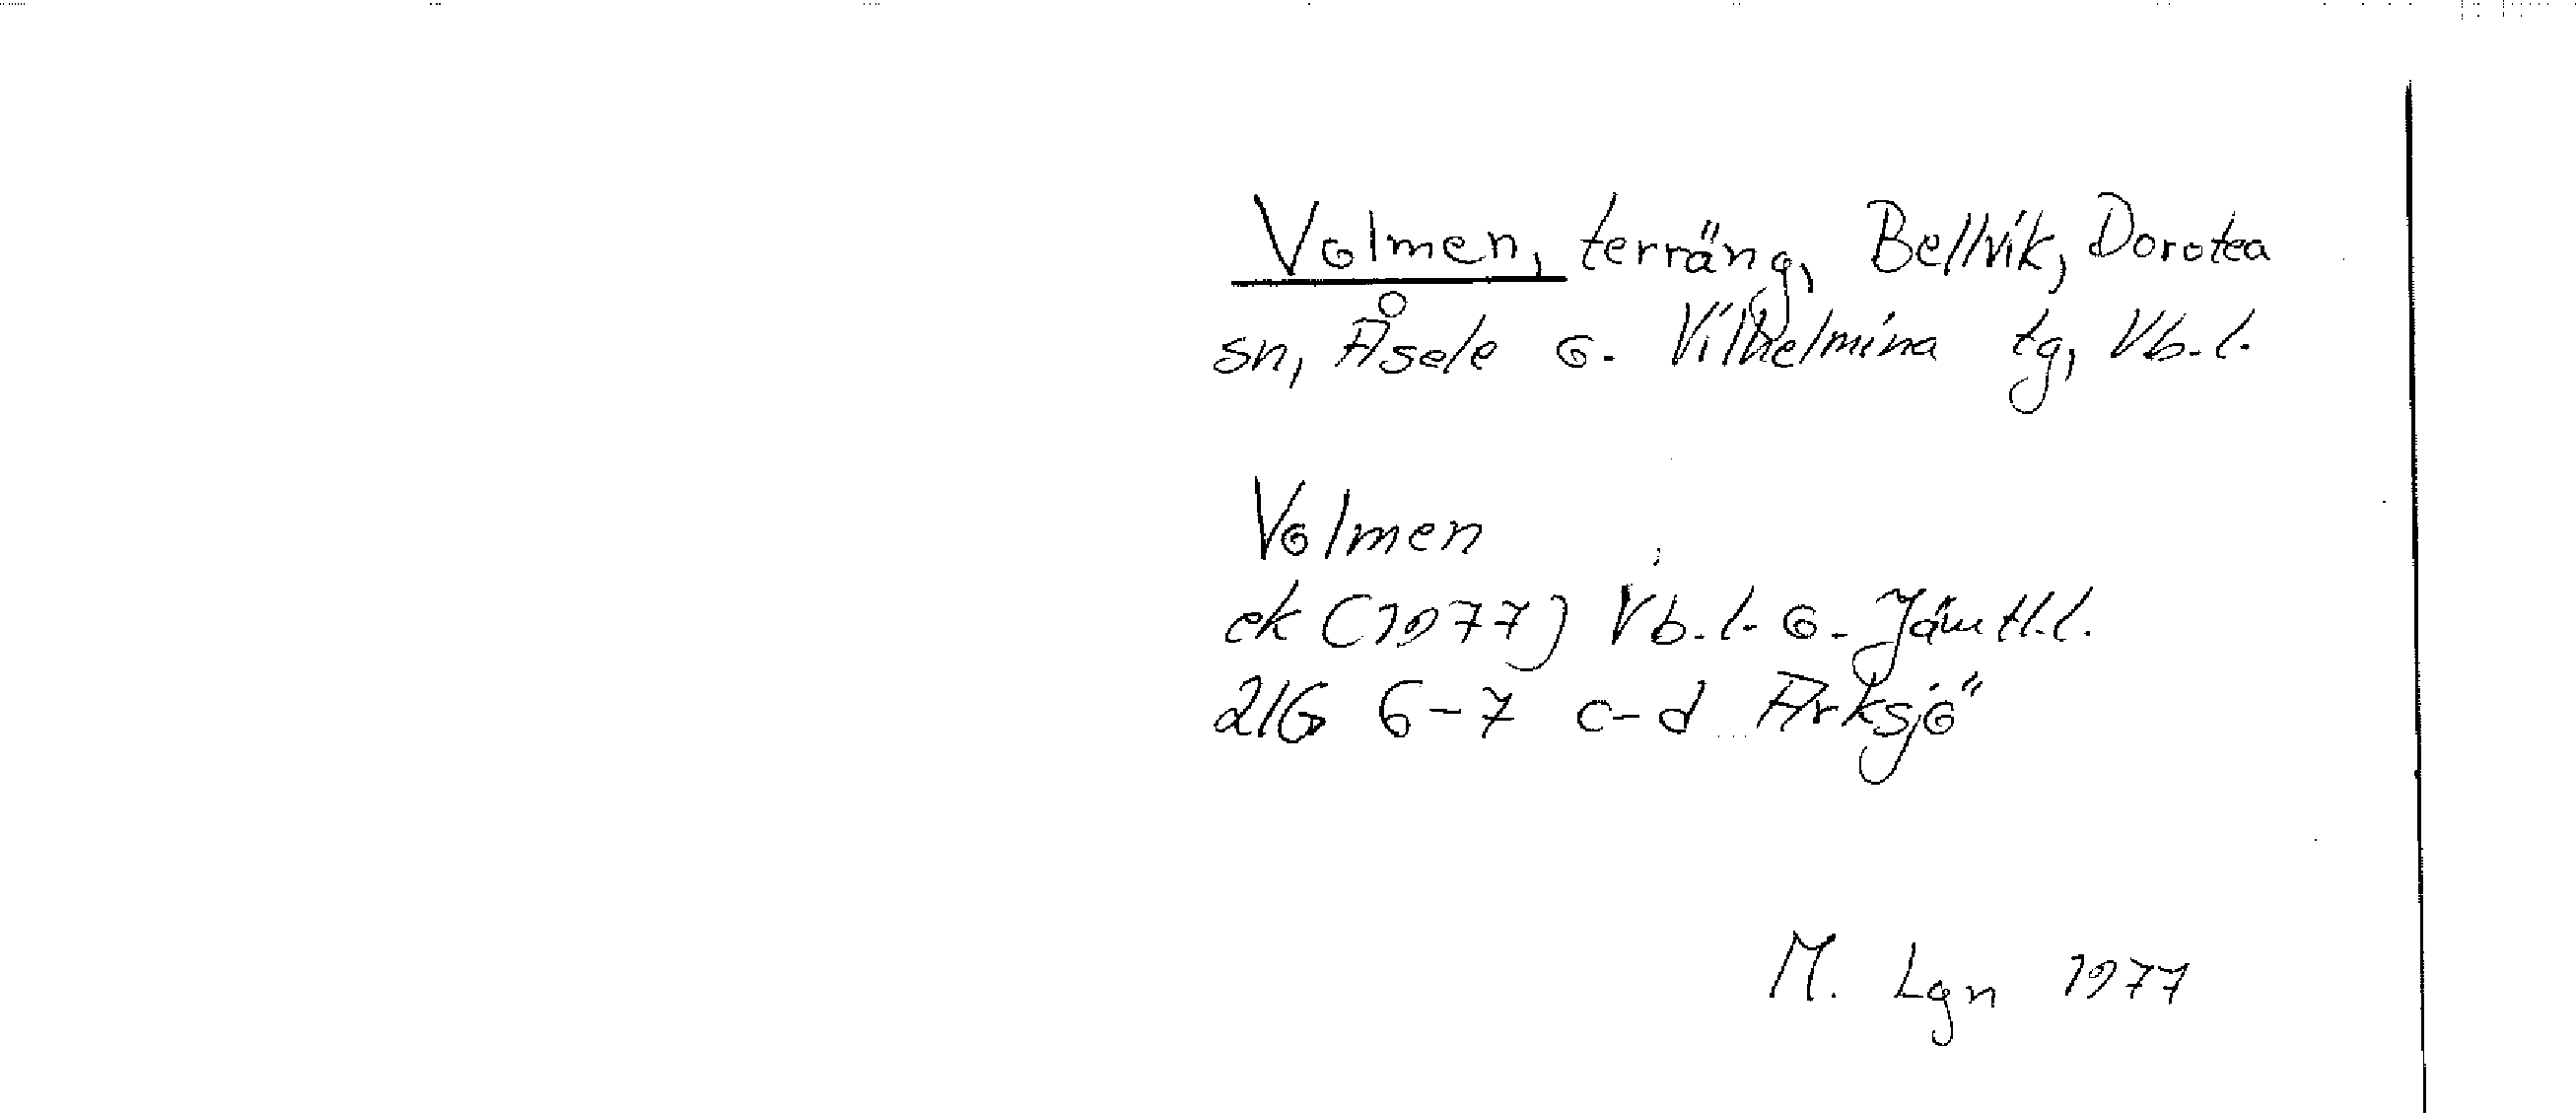 Volmen, terräng, Bellvik, Dorotea
sn, Åsele o. Vilhelmina tg, Vb.l.
Volmen
ek (1977) Vb.l. o. Jämtl.l.
21G 6-7 c-d Arksjö
M. Lgn 1977